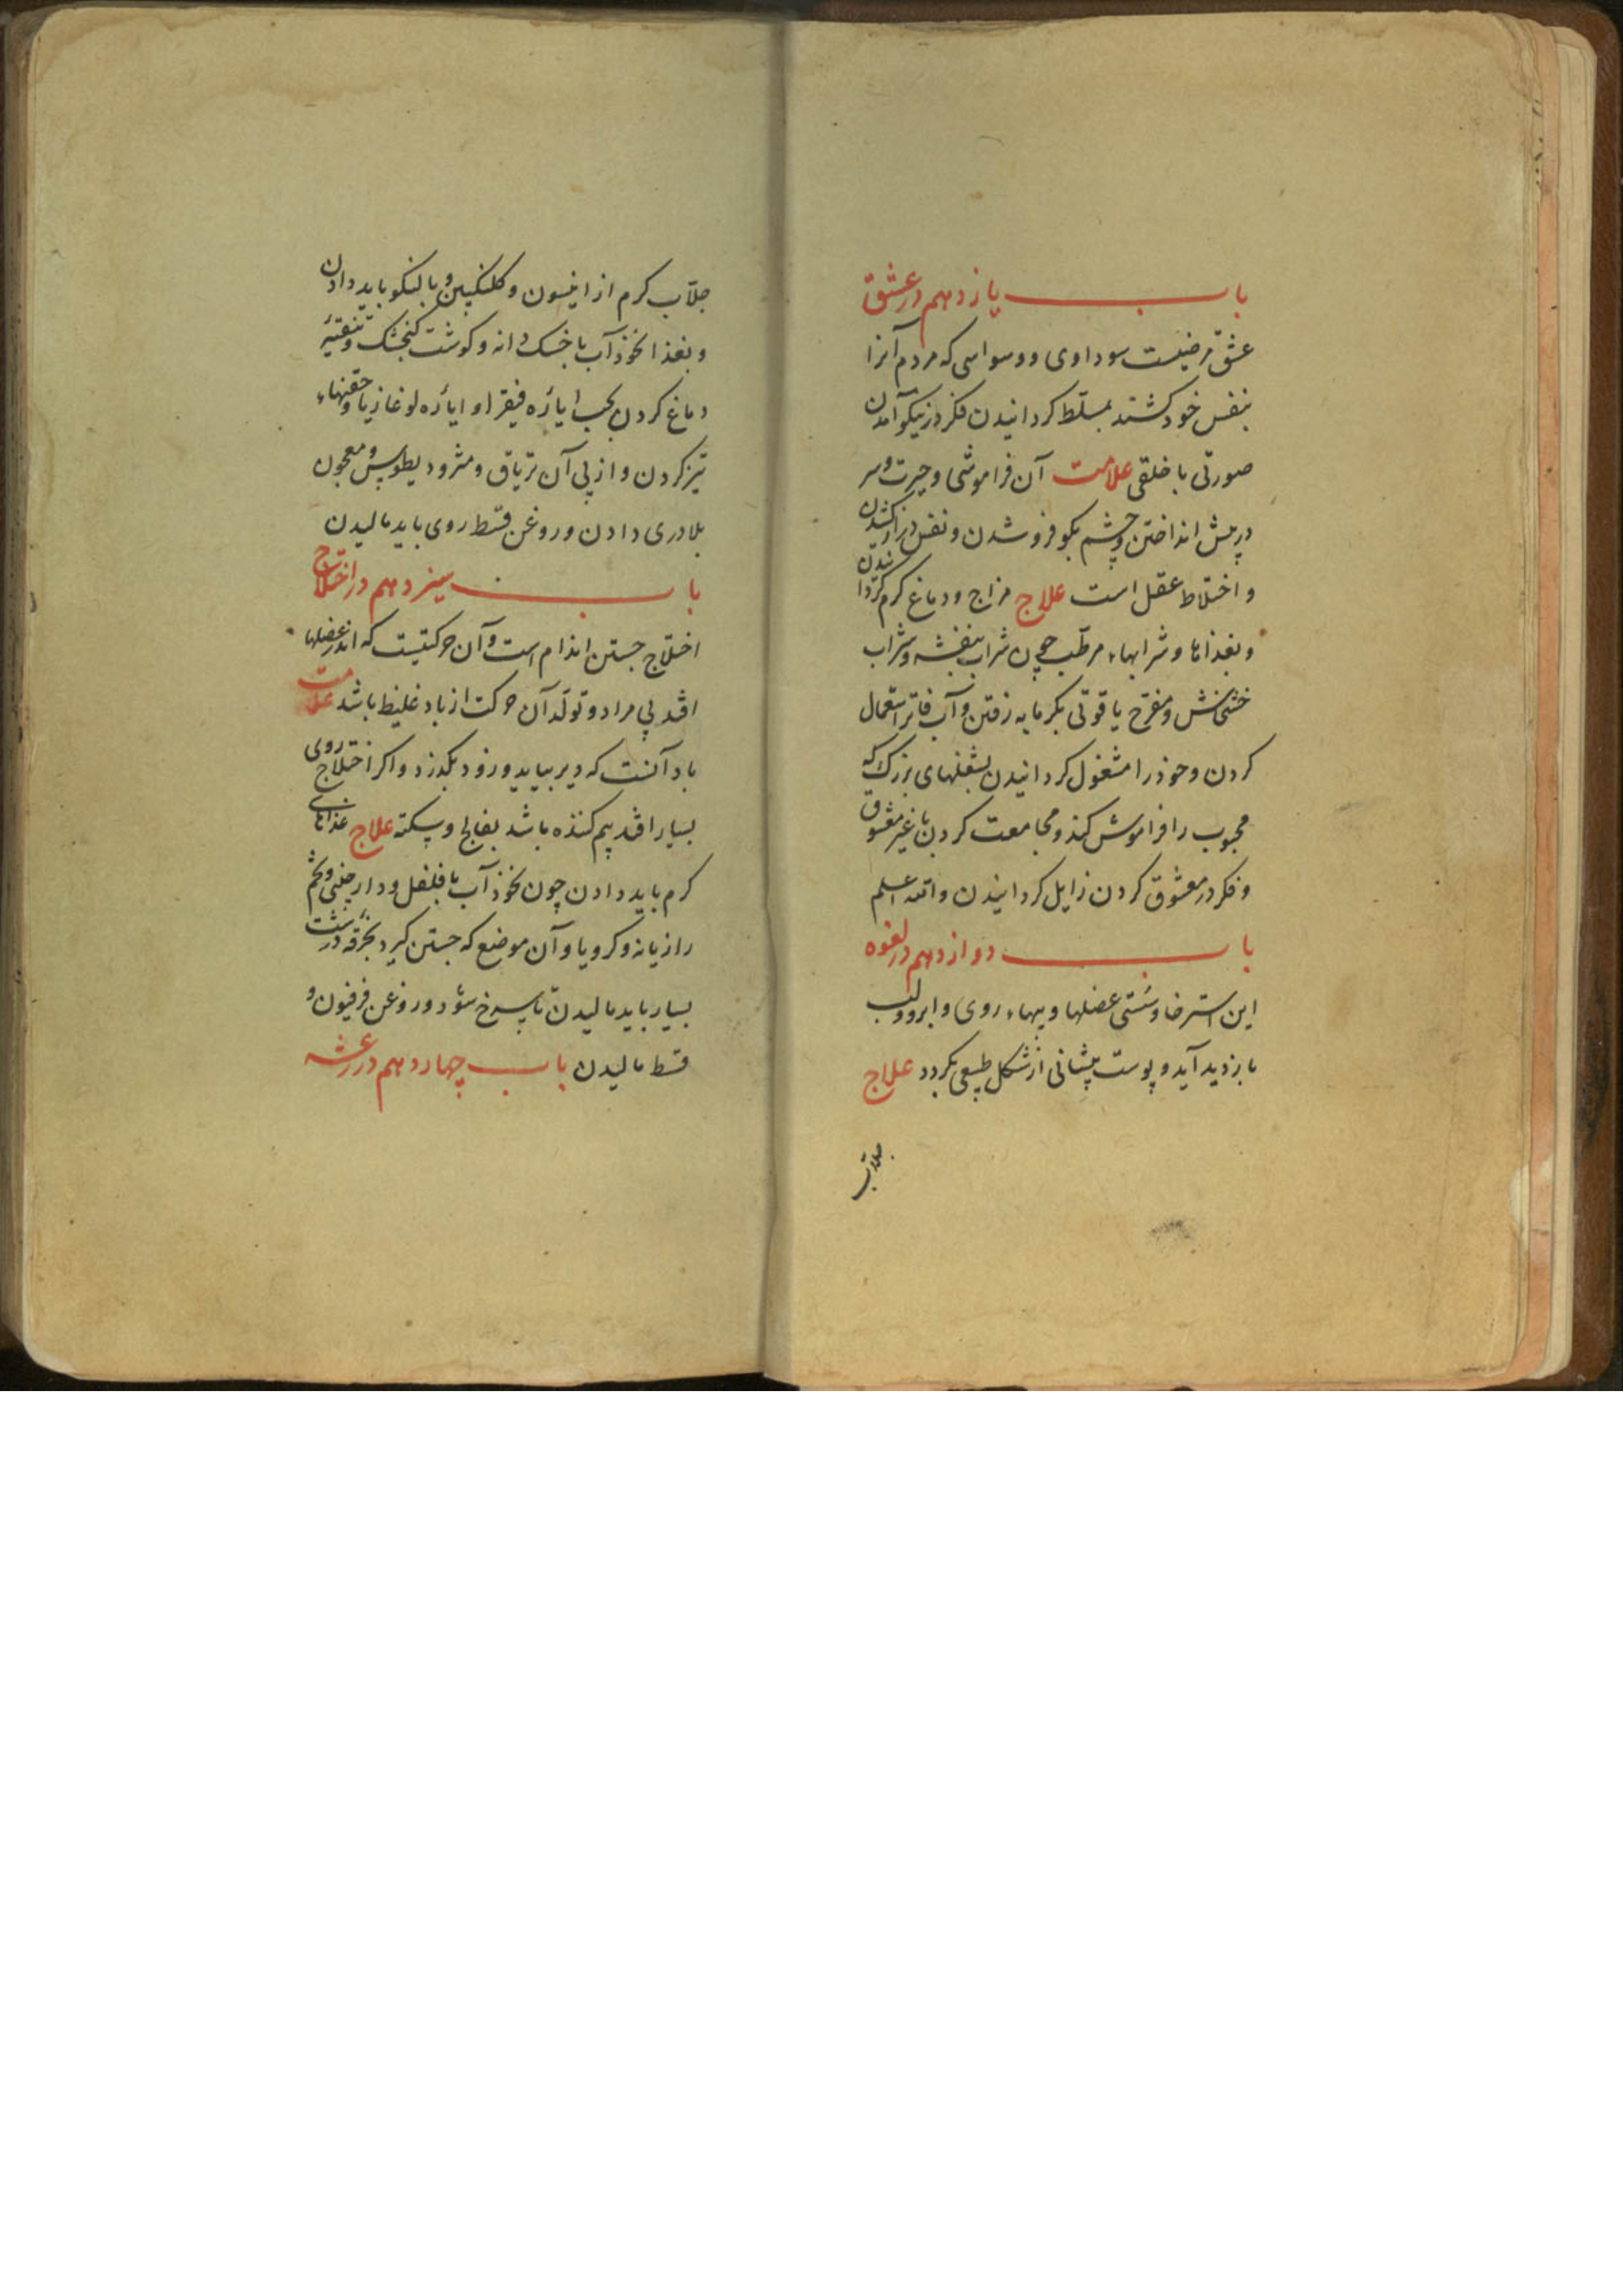 باب یازدهم در عشق
عشق مرضیست سوداوی و وسواسی که مردم آنرا
بنفس خود کشند بمسلّط کردانیدن فکر در نیکو آمدن
صورتی یا خلقی علامت آن فراموشی و حیرت و سر
در پیش انداختن و چشم بکو فرو شدن و نفس دراز کشیدن
و اختلاط عقل است علاج مزاج و دماغ کرم کردانیدن
و بغذاها و شرابهاء مرطّب چون شراب بنفشه و شراب
خشخاش و مفرح یاقوتی بکرمابه رفتن و آب فاتر استعمال
کردن و خوذ را مشغول کردانیدن بشغلهای بزرک که
محبوب را فراموش کند و مجامعت کردن با غیر معشوق
و فکر در معشوق کردن زایل کردانیدن والله اعلم
باب دوازدهم در لقوه
این استرخا و سستی عضلها و پیهاء روی و ابرو و لب
بازدید آید و پوست پیشانی از شکل طبیعی بکردد علاج
جلاّب
جلاّب کرم از انیسون و کلنکبین و بالنکو باید دادن
و بغذا نخوذ آب با خسک دانه و کوشت کنجشک و تنقیهٔ
دماغ کردن بحب ایاره فیقرا و ایاره لوغاذیا و حقنهاء
تیز کردن و از پی آن تریاق و مثرودیطوس و معجون
بلادری دادن و روغن قسط روی باید مالیدن
باب سیزدهم در اختلاج
اختلاج جستن اندام است و آن حرکتیست که اندر عضلها
افتد بی مراد و تولّد آن حرکت از باد غلیظ باشد علامت
باد آنست که دیر بیاید و زود بکذرد و اکر اختلاج روی
بسیار افتد بیم کننده باشد بفالج و سکته علاج غذاهای
کرم باید دادن چون نخوذ آب با فلفل و دارچینی و تخم
رازیانه و کرویا و آن موضع که جستن کیرد بخرقهٔ درشت
بسیار باید مالیدن تا سرخ شود و روغن فرفیون و
قسط مالیدن باب چهاردهم در رعشه